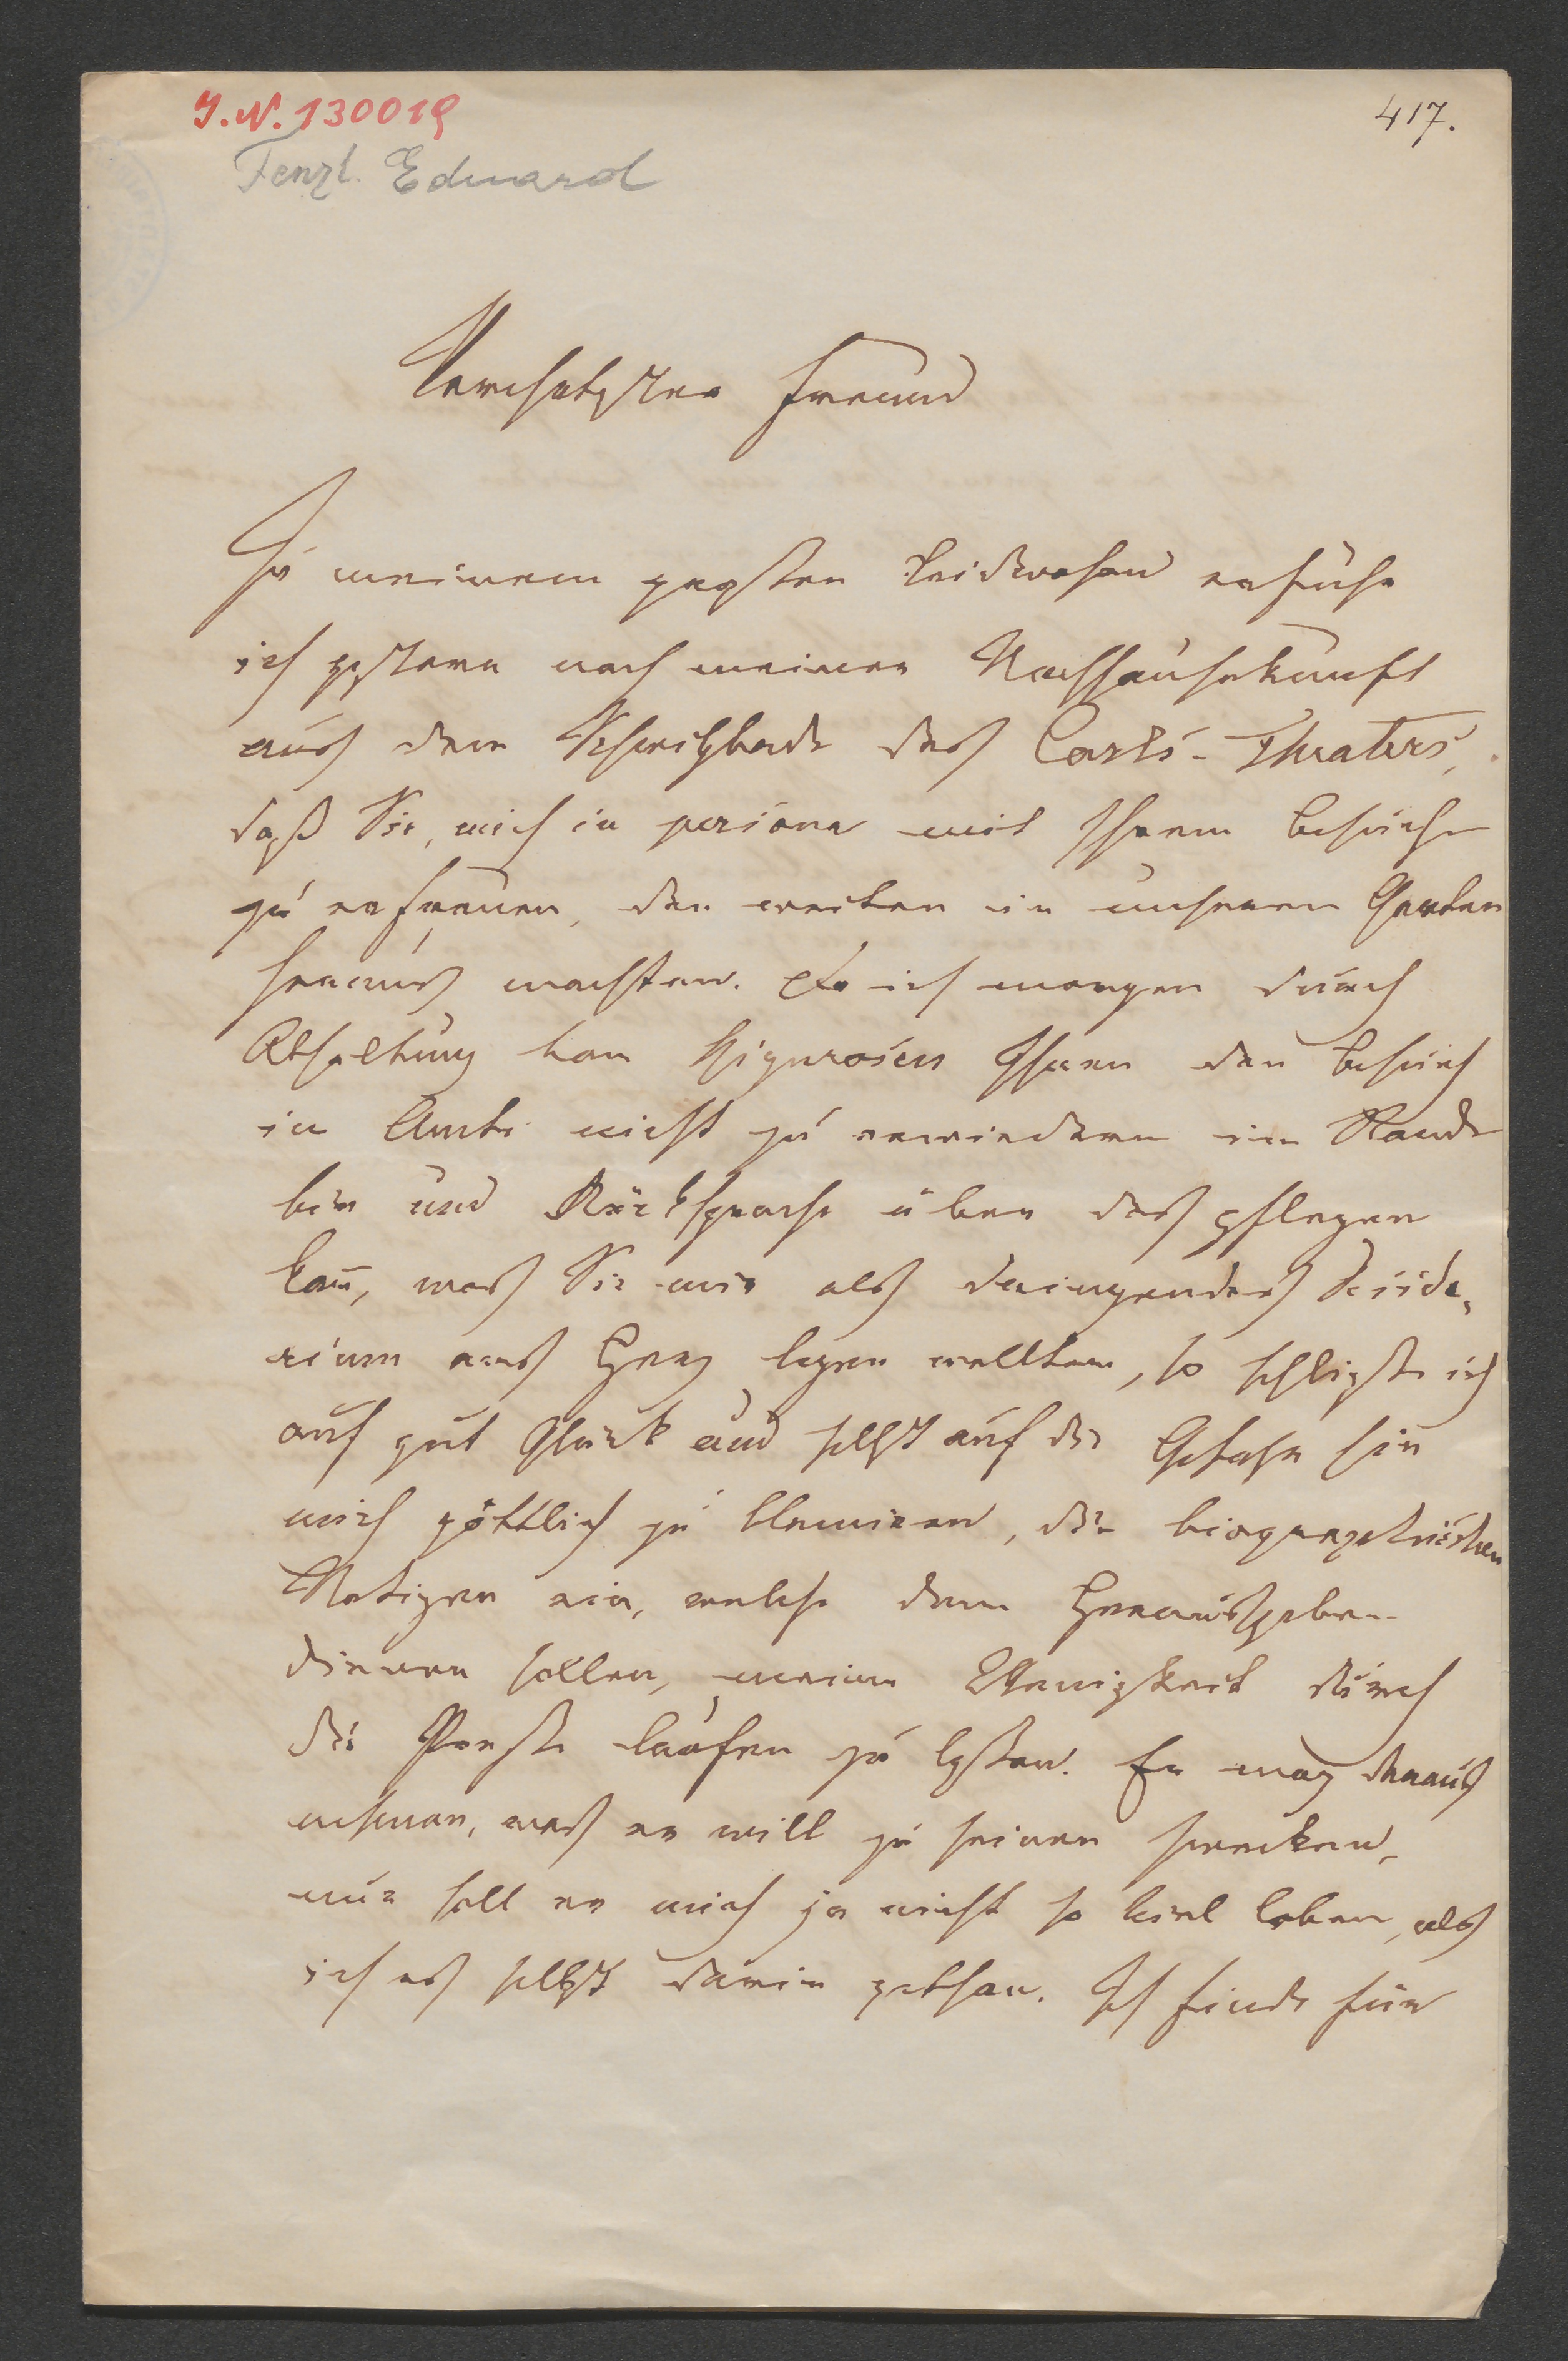 J.N. 130019
417.
Fenzl. Eduard
Verehrtester Freund
Zu meinem großten Leidwesen erfuhr
ich gestern nach meiner Nachhausekunft
aus dem Schwitzbade des Carls-Theaters,
daß Sie, mich in persona mit Ihrem Besuche
zu erfreuen, den weiten in unseren Garten
heraus machten. Da ich morgen durch
Abhaltung von Rigorosen Ihren den Besuch
im Amte nicht zu erwiedern im Stande
bin und Rücksprache über das pflegen
kan̄, was Sie mir als dringendes Deside-
rium ans Herz legen wollten, so schließe ich
auf gut Glück und selbst auf die Gefahr hin
mich göttlich zu blamiren, die biographischen
Notizen ein, welche dem Herausgeber
dienen sollen, meine Wenigkeit durch
die Presse laufen zu lassen. Er mag daraus
nehmen, was er will zu seinen Zwecken,
nur soll er mich ja nicht so viel loben, als
ich es selbst darin gethan. Ich finde für